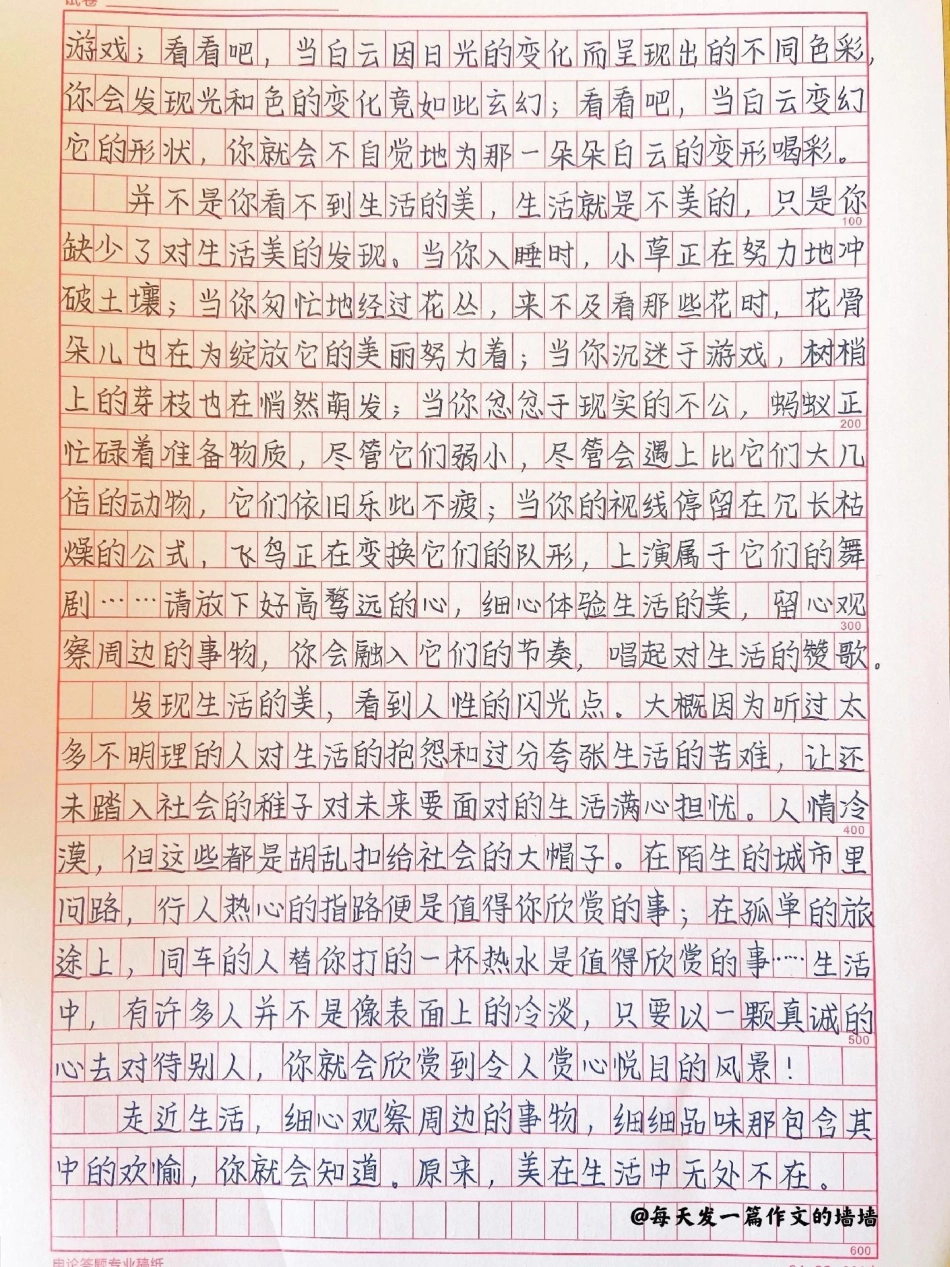 试卷
游戏；看看吧，当白云因日光的变化而呈现出的不同色彩，
你会发现光和色的变化竟如此玄幻；看看吧，当白云变幻
它的形状，你就会不自觉地为那一朵朵白云的变形喝彩。
并不是你看不到生活的美，生活就是不美的，只是你
100
缺少了对生活美的发现。当你入睡时，小草正在努力地冲
破土壤；当你匆忙地经过花丛，来不及看那些花时，花骨
朵儿也在为绽放它的美丽努力着；当你沉迷于游戏，树梢
上的芽枝也在悄然萌发；当你忿忿于现实的不公，蚂蚁正
200
忙碌着准备物质，尽管它们弱小，尽管会遇上比它们大几
倍的动物，它们依旧乐此不疲；当你的视线停留在冗长枯
燥的公式，飞鸟正在变换它们的队形，上演属于它们的舞
剧……请放下好高骛远的心，细心体验生活的美，留心观
300
察周边的事物，你会融入它们的节奏，唱起对生活的赞歌。
发现生活的美，看到人性的闪光点。大概因为听过太
多不明理的人对生活的抱怨和过分夸张生活的苦难，让还
未踏入社会的稚子对未来要面对的生活满心担忧。人情冷
400
漠，但这些都是胡乱扣给社会的大帽子。在陌生的城市里
问路，行人热心的指路便是值得你欣赏的事；在孤单的旅
途上，同车的人替你打的一杯热水是值得欣赏的事……生活
中，有许多人并不是像表面上的冷淡，只要以一颗真诚的
500
心去对待别人，你就会欣赏到令人赏心悦目的风景！
走近生活，细心观察周边的事物，细细品味那包含其
中的欢愉，你就会知道。原来，美在生活中无处不在。
@每天发一篇作文的墙墙
600
申论答题专业稿纸